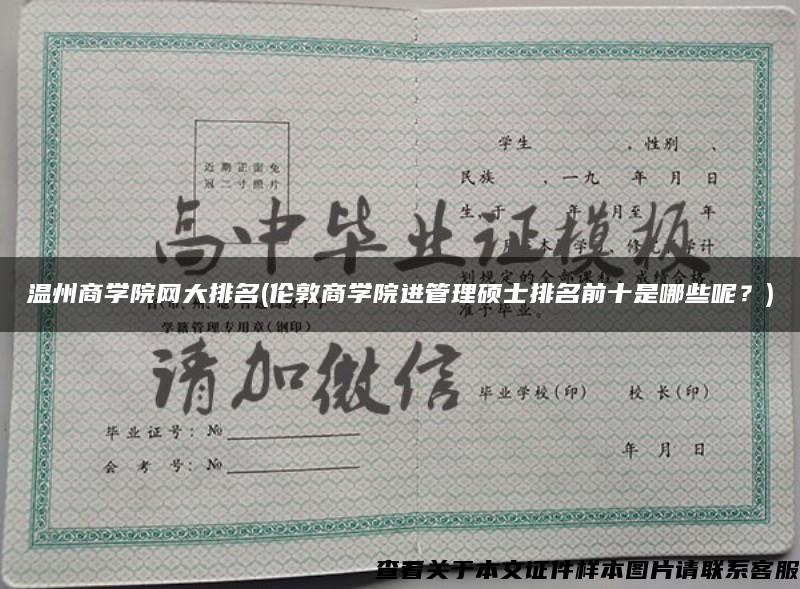 近期正面免
冠二寸照片
学籍管理专用章(钢印)
毕业证号:№
会考号:№
学生 ,性别 、
民族 ,一九 年 月 日
生,于 年 月至 年
划规定的全部课程,成绩合格,
准予毕业。
毕业学校(印) 校长(印)
年 月 日
高中毕业证模板
请加微信
温州商学院网大排名(伦敦商学院进管理硕士排名前十是哪些呢？)
查看关于本文证件样本图片请联系客服